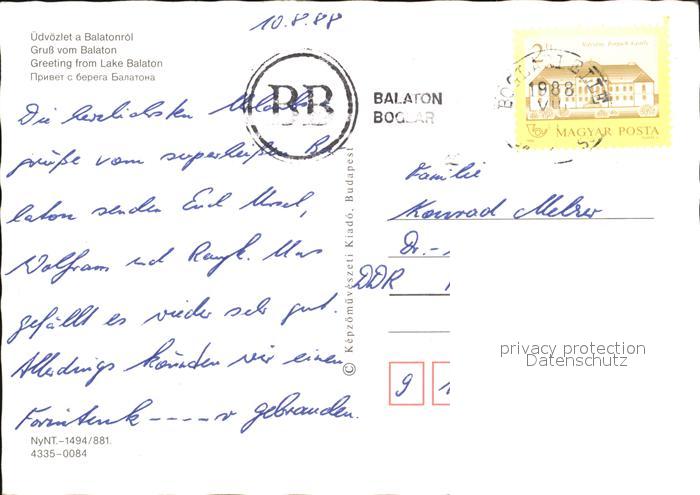 10.8.88
Üdvözlet a Balatonról
Gruß vom Balaton
Greeting from Lake Balaton
Привет с берега Балатона
Die herzlichsten Urlaubs
grüße vom superheißen Ba
laton senden Euch Ursel,
Wolfram und Uns
gefällt es wieder sehr gut.
Allerdings könnten wir einen
Forinttank ----r gebrauchen.
NyNT.–1494/881.
4335–0084
© Képzőművészeti Kiadó, Budapest
BB
BALATON
BOGLAR
1988
2
MAGYAR POSTA
Familie
Konrad Melzer
Dr.-
DDR
9
privacy protection
Datenschutz